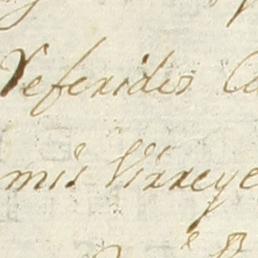 Referidos
mis Virreye